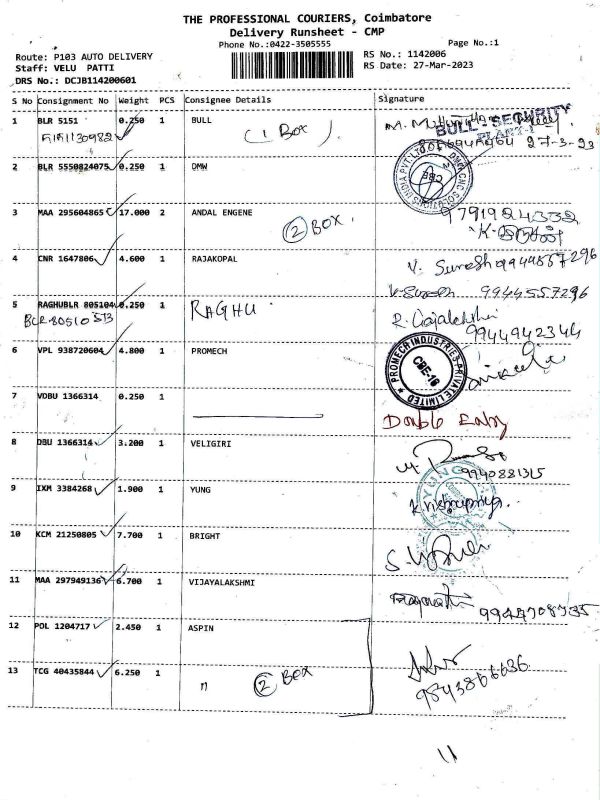 THE PROFESSIONAL COURIERS, Coimbatore
Delivery Runsheet - CMP
Phone No.:0422-3505555 Page No.:1
Route: P103 AUTO DELIVERY RS No.: 1142006
Staff: VELU PATTI RS Date: 27-Mar-2023
DRS No.: DCJB114200601
S No Consignment No Weight PCS Consignee Details Signature
1 BLR 5151 0.250 1 BULL
(1 Box) BULL - SECURITY
27-3-23
2 BLR 5550824075 0.250 1 DMW
3 MAA 295604865 17.000 2 ANDAL ENGENE 9791924332
2 BOX.
4 CNR 1647806 4.600 1 RAJAKOPAL V. Suresh 9944557296
5 RAGHUBLR 805104 0.250 1 RAGHU 9944557296
9944942344
6 VPL 938720604 4.800 1 PROMECH PROMECH INDUSTRIES PRIVATE LIMITED CBE-18
7 VDBU 1366314 0.250 1 Double Entry
8 DBU 1366314 3.200 1 VELIGIRI
9940881315
9 IXM 3384268 1.900 1 YUNG YUNG
10 KCM 21250805 7.700 1 BRIGHT
11 MAA 297949136 6.700 1 VIJAYALAKSHMI 9944708735
12 POL 1204717 2.450 1 ASPIN
13 TCG 40435844 6.250 1 " 2 BOX 9843866636
11